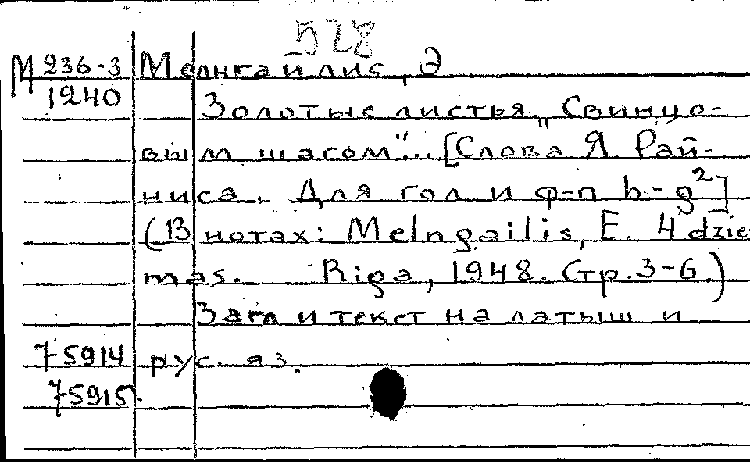 528
М 236-3 Мелнгайлис, Э
1240
Золотые листья „Свинцо-
вым шагом"... [Слова Я Рай-
ниса. Для гол и ф-п h-g²]
(В нотах: Melngailis, E. 4 dzie
mas. Riga, 1948. Стр. 3-6)
Загл и текст на латыш и
75914 рус. яз.
75915.